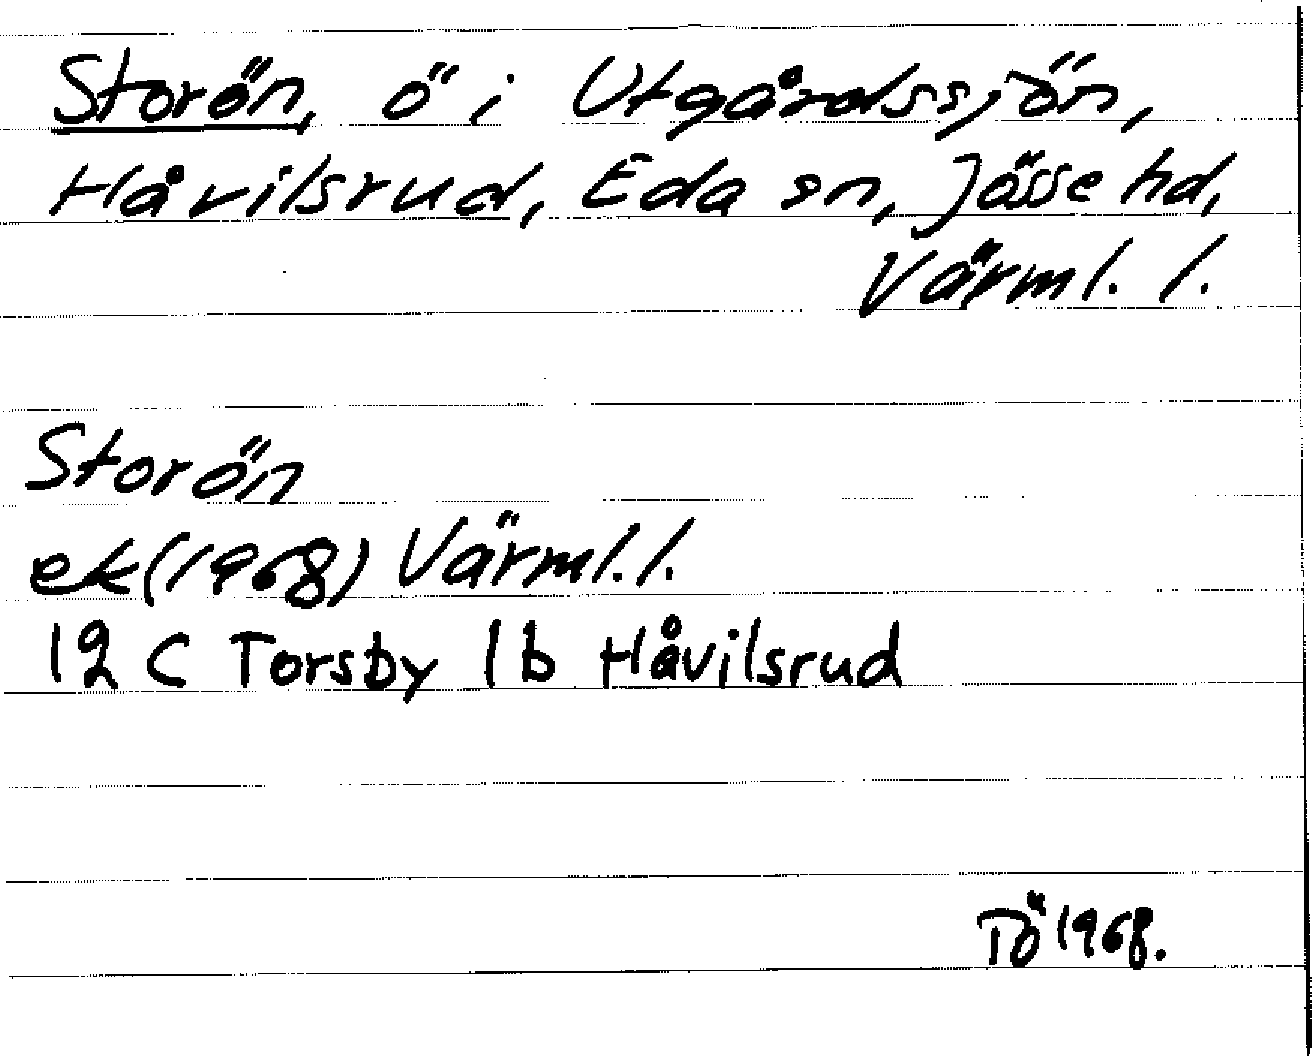 Storön, ö i Utgårdssjön,
Håvilsrud, Eda sn, Jösse hd,
Värml. l.
Storön
ek (1968) Värml. l.
12 C Torsby 1b Håvilsrud
TÖ 1968.